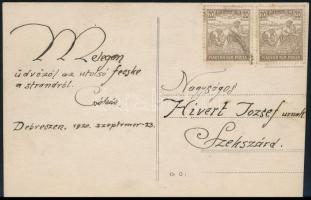 Melegen
üdvözöl az utolsó fecske
a strandról.
Csókás
Debreczen, 1920. szeptember 23.
Nagyságos
Hivert József urnak
Szekszárd.
MAGYAR KIR. POSTA
MAGYAR KIR. POSTA